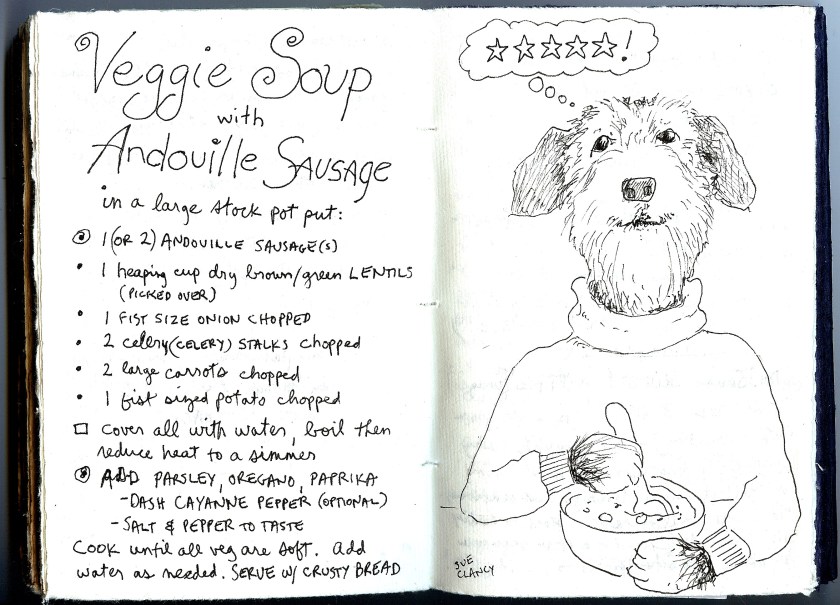 Veggie Soup
with
Andouille SAUSAGE
in a large stock pot put:
1 (OR 2) ANDOUILLE SAUSAGE(S)
1 heaping cup dry brown/green LENTILS
(PICKED OVER)
1 FIST SIZE ONION CHOPPED
2 celery (CELERY) STALKS chopped
2 large carrots chopped
1 fist sized potato chopped
cover all with water, boil then
reduce heat to a simmer
ADD PARSLEY, OREGANO, PAPRIKA
-DASH CAYANNE PEPPER (OPTIONAL)
-SALT & PEPPER TO TASTE
Cook until all veg are soft. add
water as needed. SERVE W/ CRUSTY BREAD
☆☆☆☆☆!
SUE
CLANCY